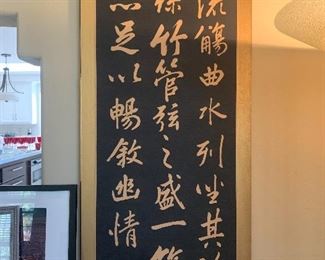 流觴曲水列坐其
絲竹管弦之盛一觴
亦足以暢敘幽情